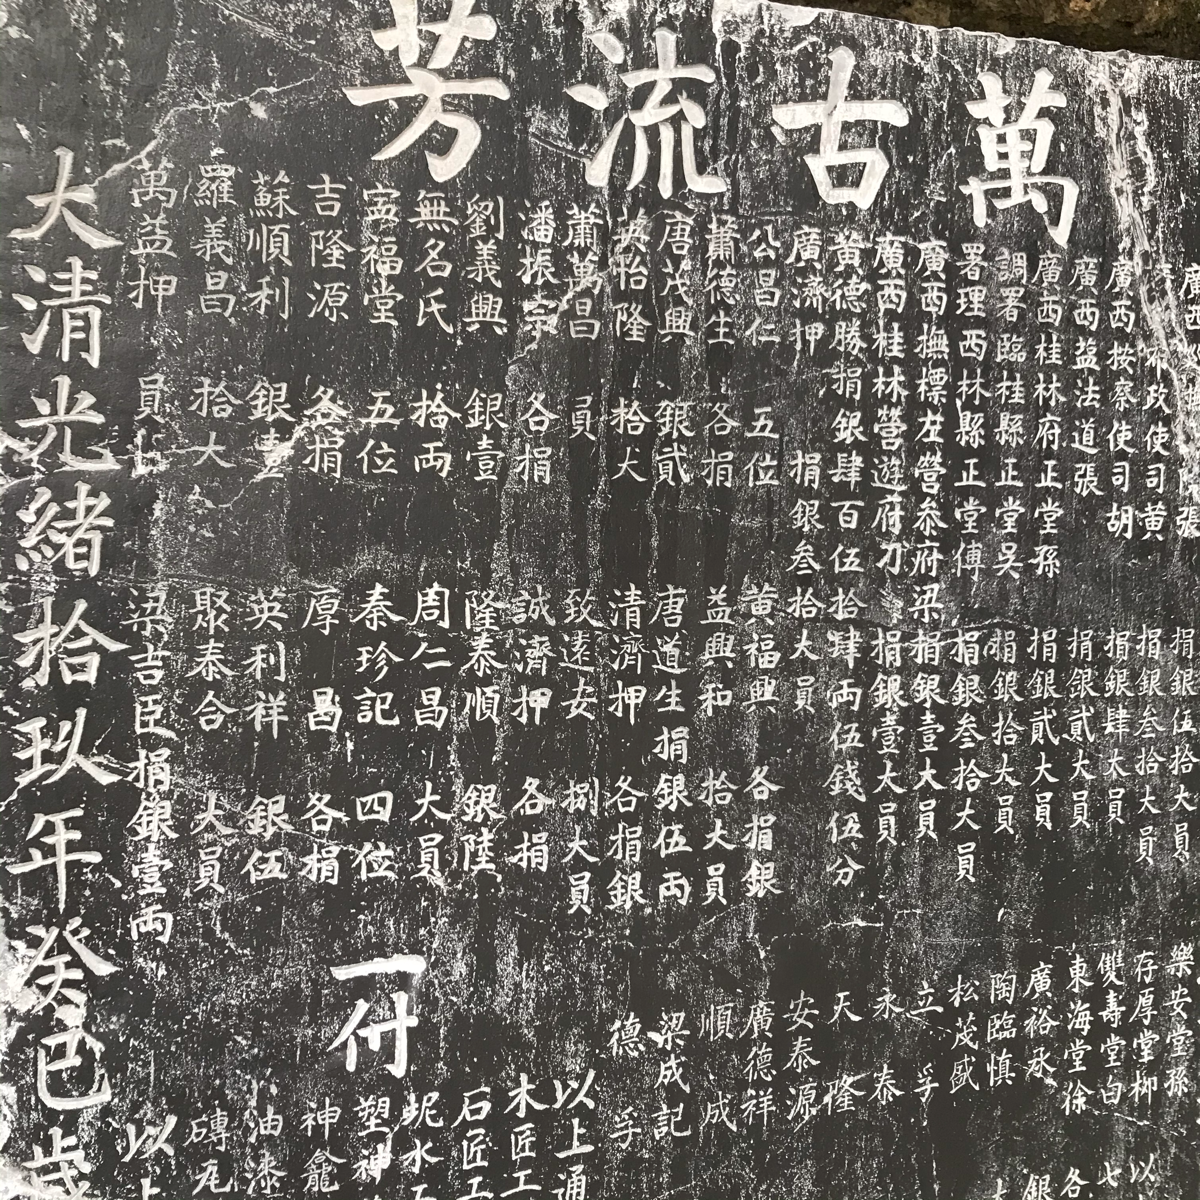 萬古流芳
張 捐銀伍拾大員 樂安堂孫
布政使司黄 捐銀叁拾大員 存厚堂柳 以
廣西按察使司胡 捐銀肆大員 雙壽堂白 七
廣西益法道張 捐銀貳大員 東海堂徐 各
廣西桂林府正堂孫 捐銀貳大員 廣裕承 銀
調署臨桂縣正堂吴 捐銀拾大員 陶臨慎
署理西林縣正堂傅 捐銀叁拾大員 松茂盛
廣西撫標左營叅府梁 捐銀壹大員 立孚
廣西桂林營遊府刀 捐銀壹大員 永泰
黄德勝捐銀肆百伍拾肆両伍錢伍分 天隆
廣濟押 捐銀叁拾大員 安泰源
公昌仁 五位 黄福興 各捐銀 廣德祥
蕭德生 各捐 益興和 拾大員 順成
唐茂興 銀貳 唐道生捐銀伍両 梁成記
英怡隆 拾大 清濟押 各捐銀 德孚
蕭萬昌 員 致遠安 捌大員 以上通
潘振宗 各捐 誠濟押 各捐 木匠工
劉義興 銀壹 隆泰順 銀陸 石匠工
無名氏 拾両 周仁昌 大員 坭水工
福堂 五位 秦珍記 四位 一付 塑神
吉隆源 各捐 厚昌 各捐 神龕
蘇順利 銀壹 英利祥 銀伍 油漆
羅義昌 拾大 聚泰合 大員 磚瓦
萬益押 員 梁吉臣捐銀壹両 以上
大清光緒拾玖年癸巳歲